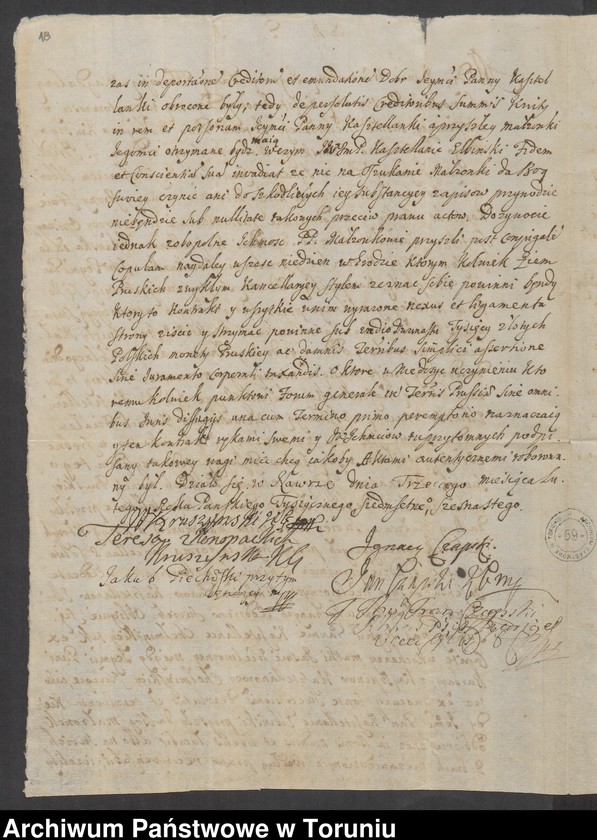 18
zas in deportatione Creditorum et emundatione Dobr Jeymci Panny Kasztel
lanki obrocone były, tedy de persolutis Creditoribus Summis Kwity
in rem et personam Jeymci Panny Kasztellanki a przyszłey małzonki
Jegomci otrzymane bydz maią W czym Kasztellanic Elbinski Fidem
et Conscientiam Sua ze nic na Oszukanie Małzonki da Bog
swoiey czynić ani do szkodliwych iey Substancyey zapisow przywodzic
niebędzie sub nullitate takowych przeciw prawu actow. Dozywocie
iednak zobopolne Ichmosc PP. Małzonkowie przyszli post Conjugale
Copulam naydaley w szesc niedziel w Grodzie ktorym kolwiek Ziem
Pruskich zwykłym Kancellaryey stylem zeznac sobie powinni będą
Ktory to Kontrakt y wszystkie w nim wyrazone nexus et ligamenta
strony ziscic y strzymac powinne sub vadio Tysięcy złotych
Polskich monety Pruskiey ac damnis Terrestribus simplici assertione
sine Juramento Corporali taxandis. O ktore w niedosyc uczynieniu kto
remu kolwiek punktowi Forum generale in Terris Prussiae sine omni
bus Juris diffugijs una cum Termino primo peremptorio naznaczaią
y ten Kontrakt rękami swemi y Ichmciow tu przytomnych podpi
sany takowey wagi miec chcą iakoby Aktami autentycznemi roborowa
ny był. Działo się w Nawrze dnia Trzeciego miesiąca Lu
tego Roku Panskiego Tysiącznego, siedmsetnego, szesnastego.
Kruszynski
Teresa
Kruszynska
Ignacy Czapski.
Jakub Piechowski przytym
Jan Czapski
Fran Czapski
TORUNIU
59
ARCHIWUM
Archiwum Państwowe w Toruniu